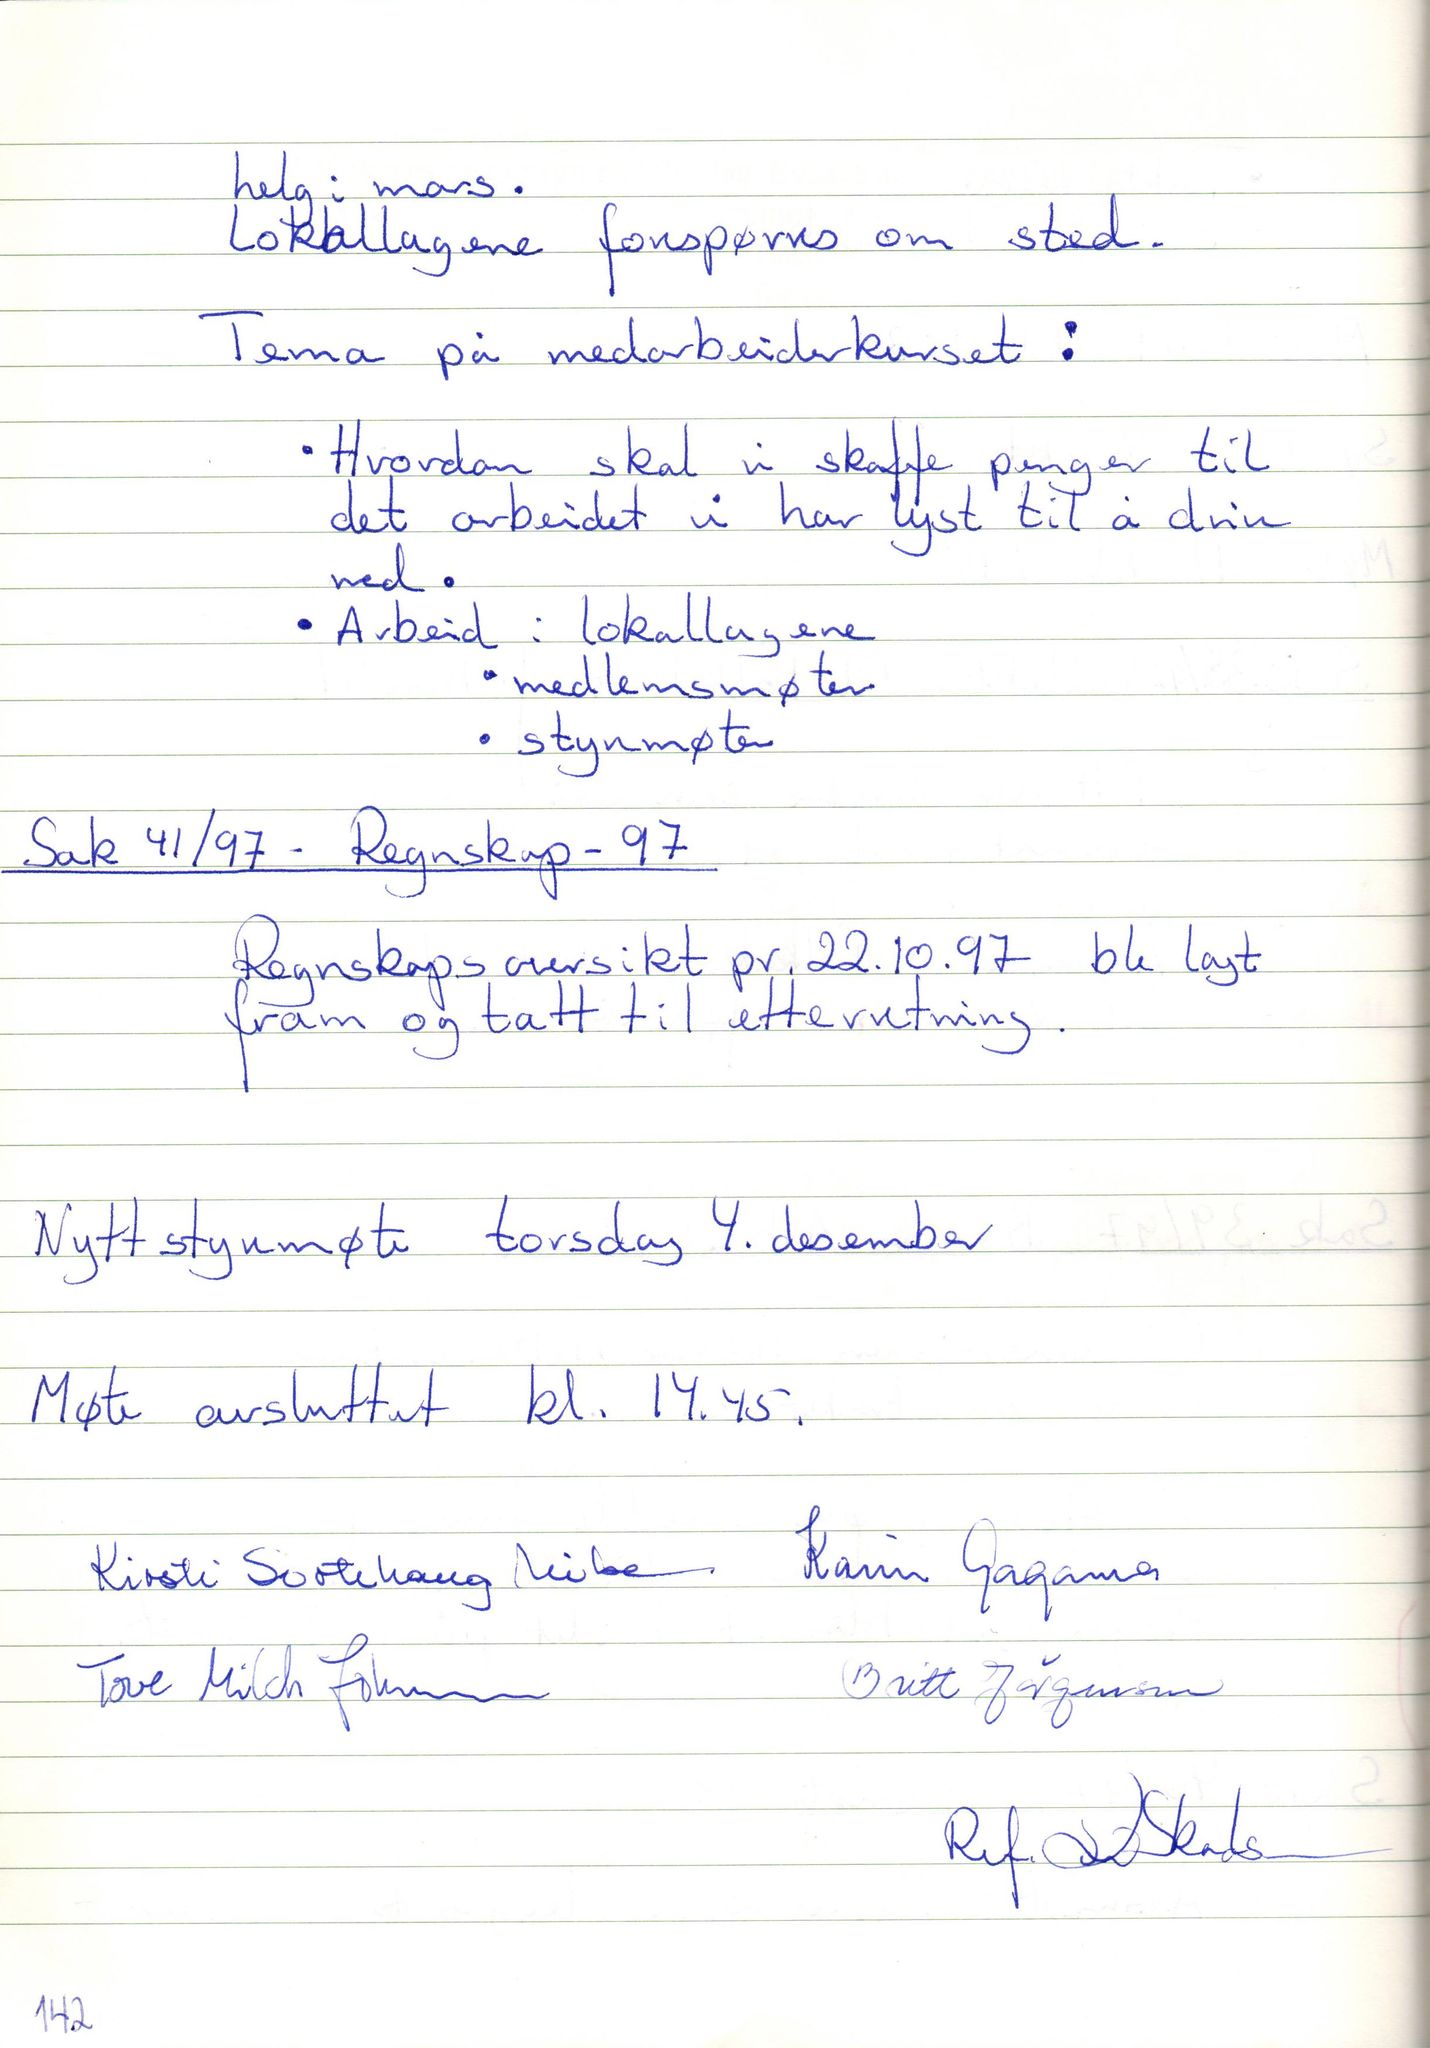 helg i mars.
Lokallagene forespørres om sted.
Tema på medarbeiderkurset :
• Hvordan skal vi skaffe penger til
det arbeidet vi har lyst til å drive
med.
• Arbeid i lokallagene
• medlemsmøter
• styremøter
Sak 41/97 - Regnskap - 97
Regnskapsoversikt pr. 22.10.97 ble lagt
fram og tatt til etterretning.
Nytt styremøte torsdag 4. desember
Møte avsluttet kl. 14.45.
Kirsti Sortehaug Karin Gaganes
Tove Milch Britt Jørgensen
Ref.
142